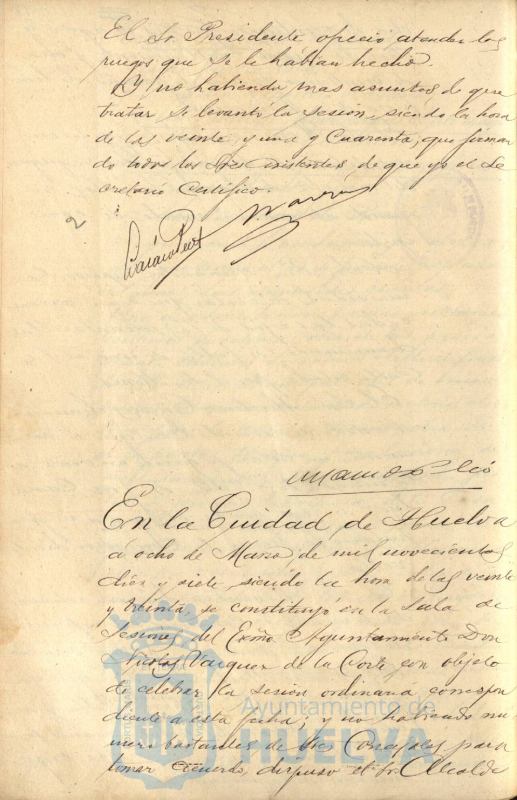 El Sr. Presidente ofreció atender los
ruegos que se le habian hecho.
Y no habiendo mas asuntos de que
tratar se levantó la sesión, siendo la hora
de las veinte y una y Cuarenta, que firman
do todos los Sres asistentes, de que yo el Se
cretario Certifico.
2
En la Ciudad de Huelva
á ocho de Marzo, de mil novecientos
diez y siete, siendo la hora de las veinte
y treinta, se constituyó en la Sala de
Sesiones del Excmo Ayuntamiento Don
Nicolas Vazquez de la Corte, con objeto
de celebrar la sesión ordinaria correspon
diente á esta fecha; y no habiendo nú
mero bastante de Sres Concejales para
tomar acuerdo, dispuso el Sr. Alcalde
Ayuntamiento de
HUELVA